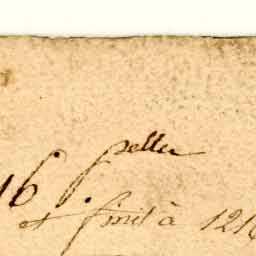 16 f. pellu
et finit à 1216